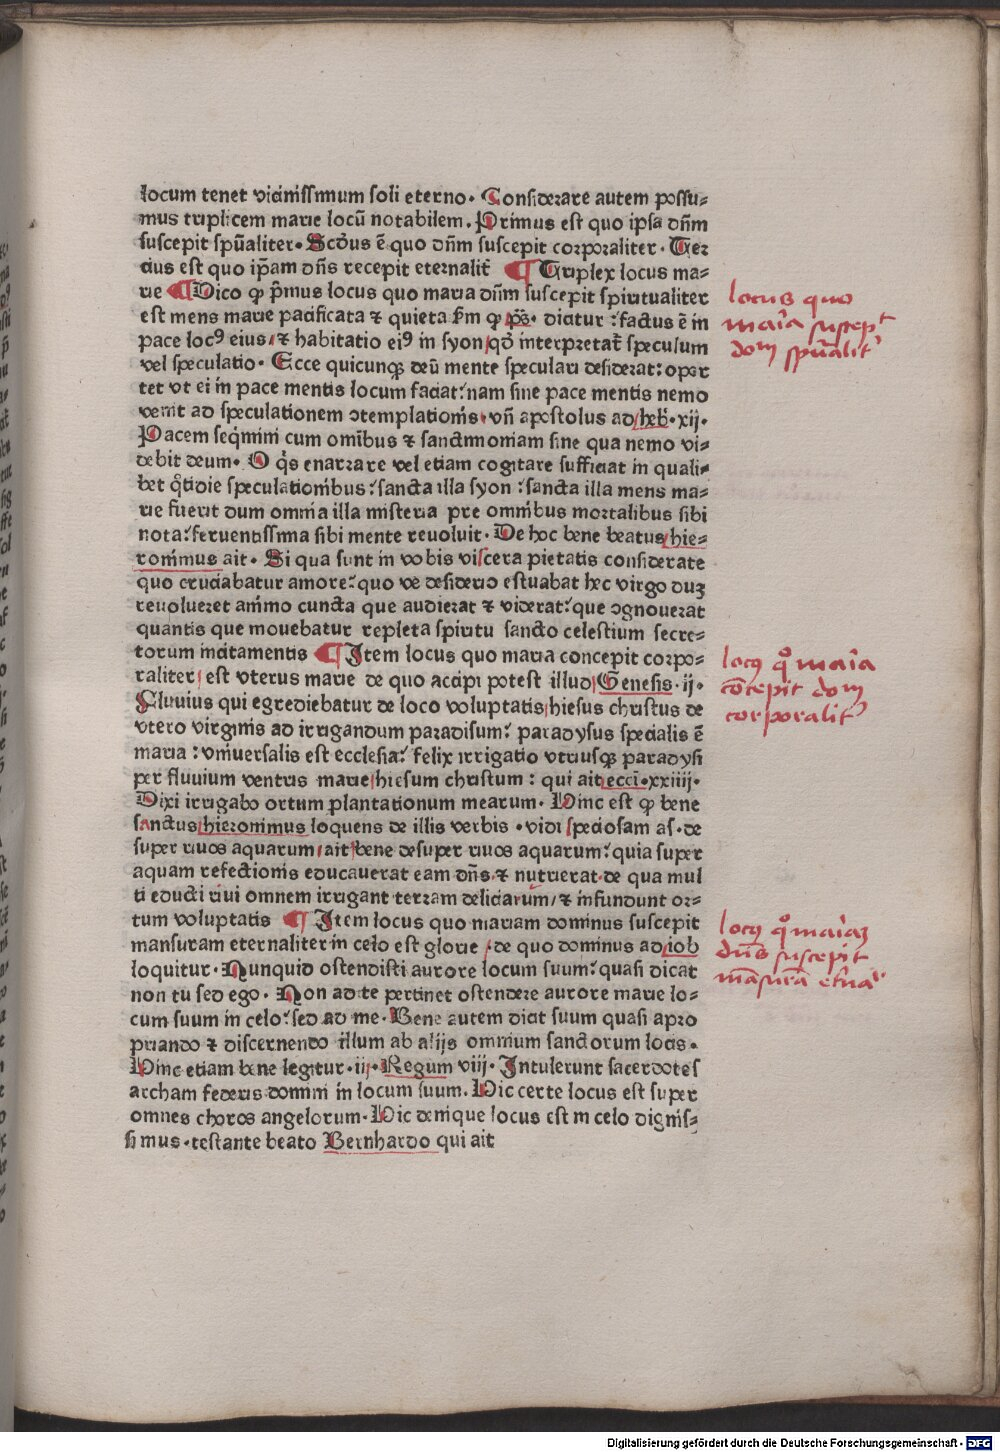 locum tenet vicinissimum soli eterno. Considerare autem possu⸗
mus triplicem marie locū notabilem. Primus est quo ipsa dñm
suscepit spūaliter. Scđus ē quo dñm suscepit corporaliter. Ter
cius est quo ip̄am dñs recepit eternalit̄ ¶ Triplex locus ma⸗
rie ¶ Dico ꝙ p̄mus locus quo maria dūm suscepit spiritualiter
est mens marie pacificata ⁊ quieta s̄m ꝙ p̄s̄. dicitur : factus ē in
pace locꝰ eius / ⁊ habitatio eiꝰ in syon / qđ interpretat̄ speculum
vel speculatio. Ecce quicunqꝫ deū mente speculari desiderat: opor
tet vt ei in pace mentis locum faciat: nam sine pace mentis nemo
venit ad speculationem ↄtemplationis. vñ apostolus ad heb̄. xij.
Pacem seq̄mini cum omībus ⁊ sanctimoniam sine qua nemo vi⸗
debit deum. O q̄s enarrare vel etiam cogitare sufficiat in quali⸗
bet q̄tidie speculationibus: sancta illa syon : sancta illa mens ma⸗
rie fuerit dum omnia illa misteria pre omnibus mortalibus sibi
nota: feruentissima sibi mente reuoluit. De hoc bene beatus hie⸗
ronimus ait. Si qua sunt in vobis viscera pietatis considerate
quo cruciabatur amore: quo ve desiderio estuabat hec virgo duꝫ
reuolueret animo cuncta que audierat ⁊ viderat: que ↄgnouerat
quantis que mouebatur repleta spiritu sancto celestium secre⸗
torum incitamentis ¶ Item locus quo maria concepit corpo⸗
raliter / est vterus marie de quo accipi potest illud Genesis. ij.
Fluuius qui egrediebatur de loco voluptatis / hiesus christus de
vtero virginis ad irrigandum paradisum: paradysus specialis ē
maria : vniuersalis est ecclesia: felix irrigatio vtriusqꝫ paradysi
per fluuium ventris marie / hiesum christum : qui ait ecci. xxiiij.
Dixi irrigabo ortum plantationum mearum. Hinc est ꝙ bene
sanctus hieronimus loquens de illis verbis . vidi speciosam as. de
super riuos aquarum / ait bene desuper riuos aquarum: quia super
aquam refectionis educauerat eam dñs. ⁊ nutrierat. de qua mul
ti educti riui omnem irrigant terram deliciarum / ⁊ infundunt or⸗
tum voluptatis ¶ Item locus quo mariam dominus suscepit
mansuram eternaliter in celo est glorie / de quo dominus ad iob
loquitur. Nunquid ostendisti aurore locum suum: quasi dicat
non tu sed ego. Non ad te pertinet ostendere aurore marie lo⸗
cum suum in celo: sed ad me. Bene autem dicit suum quasi apro
priando ⁊ discernendo illum ab alijs omnium sanctorum locis.
Hinc etiam bene legitur. iij. Regum viij. Intulerunt sacerdotes
archam federis domini in locum suum. Hic certe locus est super
omnes choros angelorum. Hic denique locus est in celo dignis⸗
simus. testante beato Bernhardo qui ait
locus quo
maria suscept
dom̄ sp̄ualit̄
locꝰ q̊ maria
cōcepit dom̄
corporalit̄
locꝰ q̊ mariaꝫ
dūs suscepit
māsurā et̄na
Digitalisierung gefördert durch die Deutsche Forschungsgemeinschaft - DFG